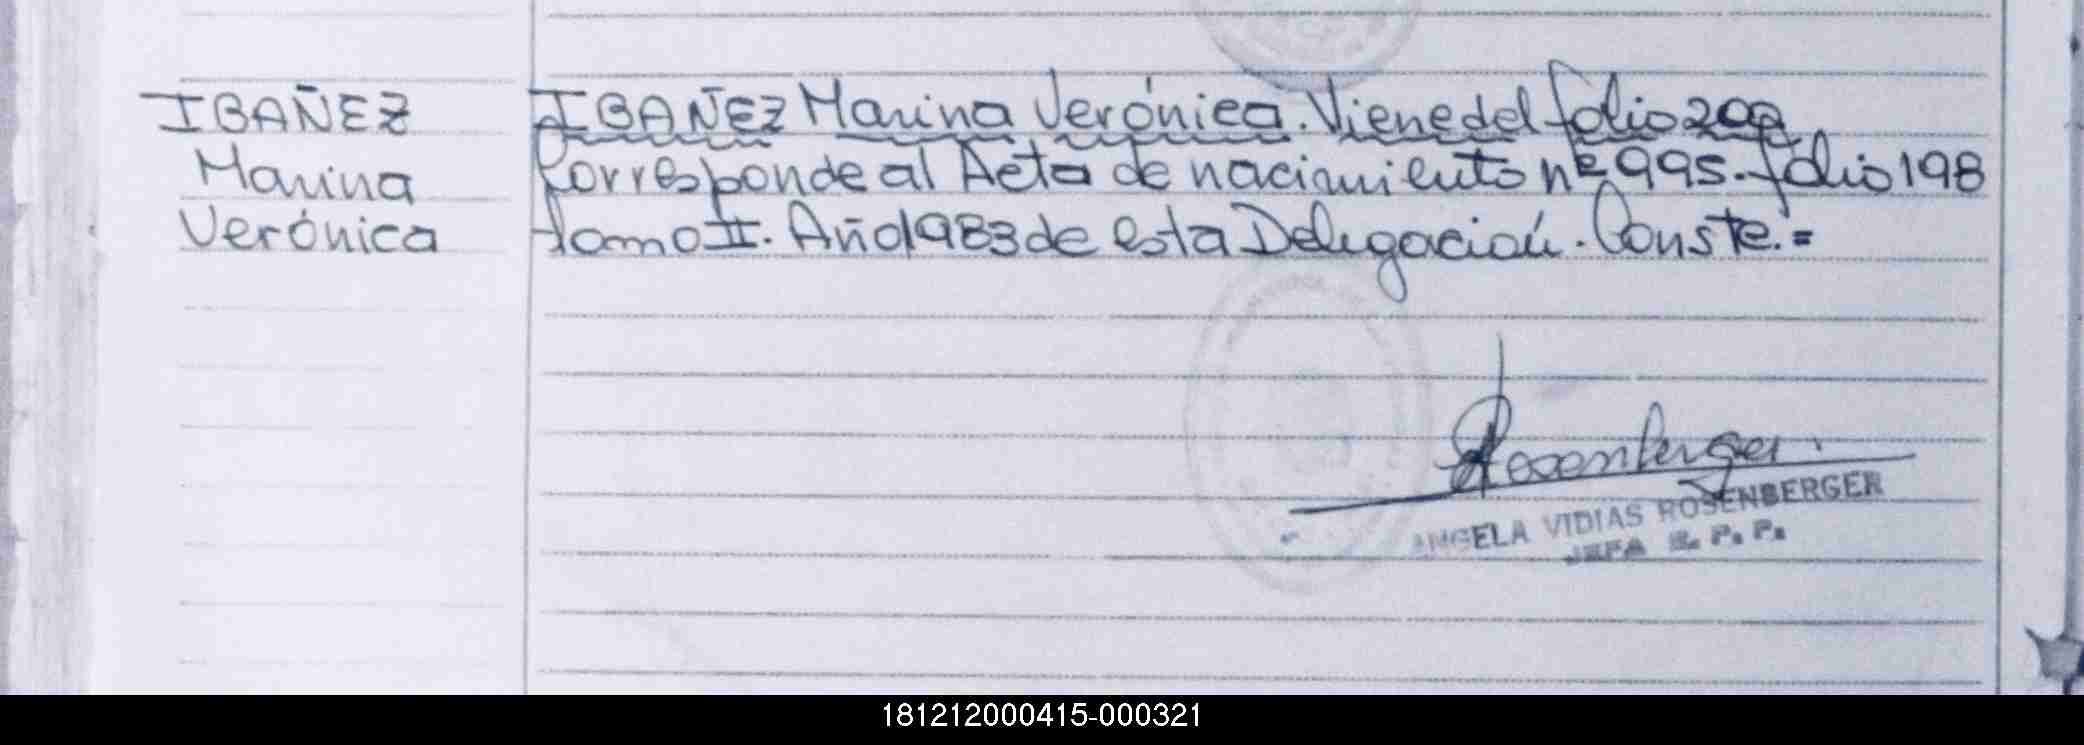 IBAÑEZ
Marina
Verónica
IBAÑEZ Marina Verónica. Viene del folio 200
Corresponde al Acta de nacimiento nº 995. folio 198
tomo II. Año 1983 de esta Delegación. Conste.=
Rosenberger.
ANGELA VIDIAS ROSENBERGER
JEFA E. P. P.
181212000415-000321